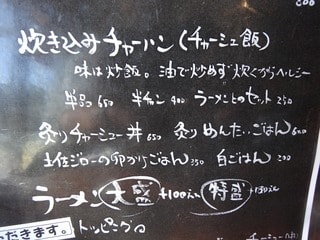 炊き込みチャーハン(チャーシュー飯)
味は炒飯。油で炒めず炊くからヘルシー
半チャン 400 ラーメンとのセット 250
炙りチャーシュー丼 650 炙りめんたいごはん
土佐ジローの卵かけごはん 350 白ごはん 200
ラーメン 大盛 +100 特盛 +150
だきます。 トッピング